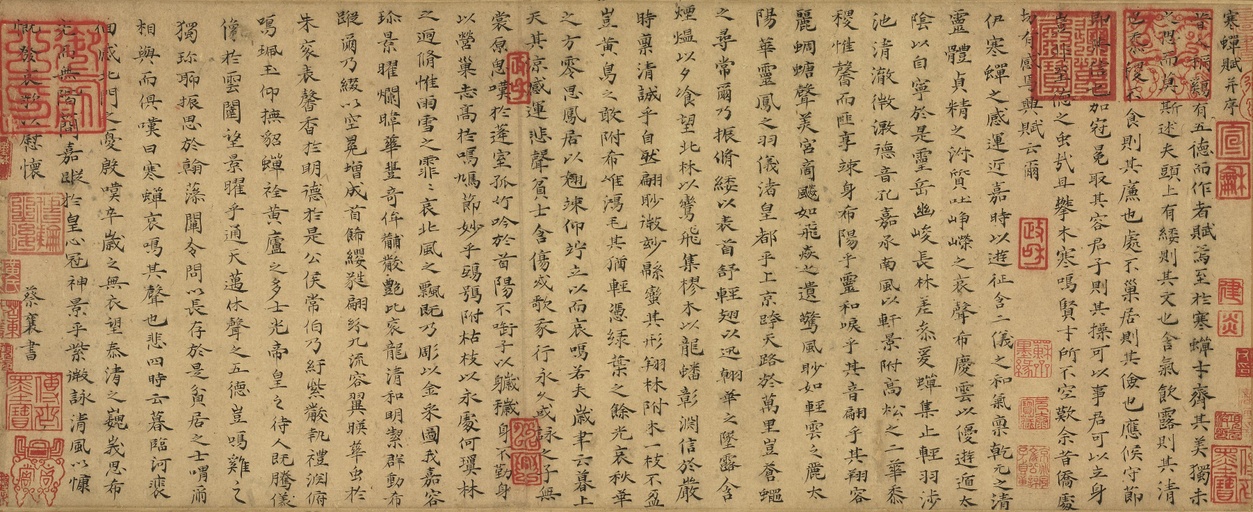 寒蟬賦并序
昔人稱雞有五德而作者賦焉至於寒蟬才齊其美獨未
之思而莫斯述夫頭上有緌則其文也含氣飲露則其清
也黍稷不食則其廉也處不巢居則其儉也應候守節
則其信也加冠冕取其容君子則其操可以事君可以立身
豈非至德之虫哉且攀木寒鳴賢才所不空歎余昔僑處
切有感焉興賦云爾
伊寒蟬之感運近嘉時以遊征含二儀之和氣禀乾元之清
靈體貞精之淑質吐崢嶸之哀聲布慶雲以優遊遁太
陰以自寧於是靈岳幽峻長林差叅爰蟬集止輕羽涉
池清澈微激德音孔嘉承南風以軒景附高松之二華黍
稷惟馨而匪享竦身布陽乎靈和唳乎其音翩乎其翔容
麗蜩螗聲美宮商飈如飛焱之遺驚風眇如輕雲之麗太
陽華靈鳳之羽儀渚皇都乎上京跨天路於萬里豈蒼蠅
之尋常爾乃振脩緌以表首舒輕翅以迅翰華之墜露含
煙熅以夕飡望北林以鸞飛集樛木以龍蟠彰淵信於嚴
時禀清誠乎自然翩眇微妙緜蠻其形翔林附木一枝不盈
豈黃鳥之敢附布唯鴻毛其猶輕憑綠葉之餘光哀秋華
之方零思鳳居以翹竦仰竚立以而哀鳴若夫歲聿云暮上
天其凉感運悲聲貧士含傷或歌我行永久或詠之子無
裳原思嘆於蓬室孤竹吟於首陽不銜子以穢身不勤身
以營巢志高於鳲鳩節妙乎鴟鴞附枯枝以永處何瓊林
之迴脩惟雨雪之霏霏哀北風之飄既乃彫以金采圖我嘉容
珍景曜爛暐華豐奇侔黼黻艷比衮龍清和明潔群動布
蹤爾乃綴以玄冕增成首飾纓蕤翩紛九流容翼暎華虫於
朱衮表馨香於明德於是公侯常伯乃紆紫黻執禮淵俯
鳴珮玉仰撫貂蟬飾黃廬之多士光帝皇之待人既騰儀
像於雲闥望景曜乎通天邁休聲之五德豈鳴雞之
獨珍聊振思於翰藻闡令問以長存於是貧居之士喟爾
相與而俱嘆曰寒蟬哀鳴其聲也悲四時云暮臨河褱
徊感北門之憂殷嘆卒歲之無衣望泰清之巍峩思希
光而無階簡嘉蹤於皇心冠神景乎紫微詠清風以慷
慨發哀歌以慰懷
蔡襄書